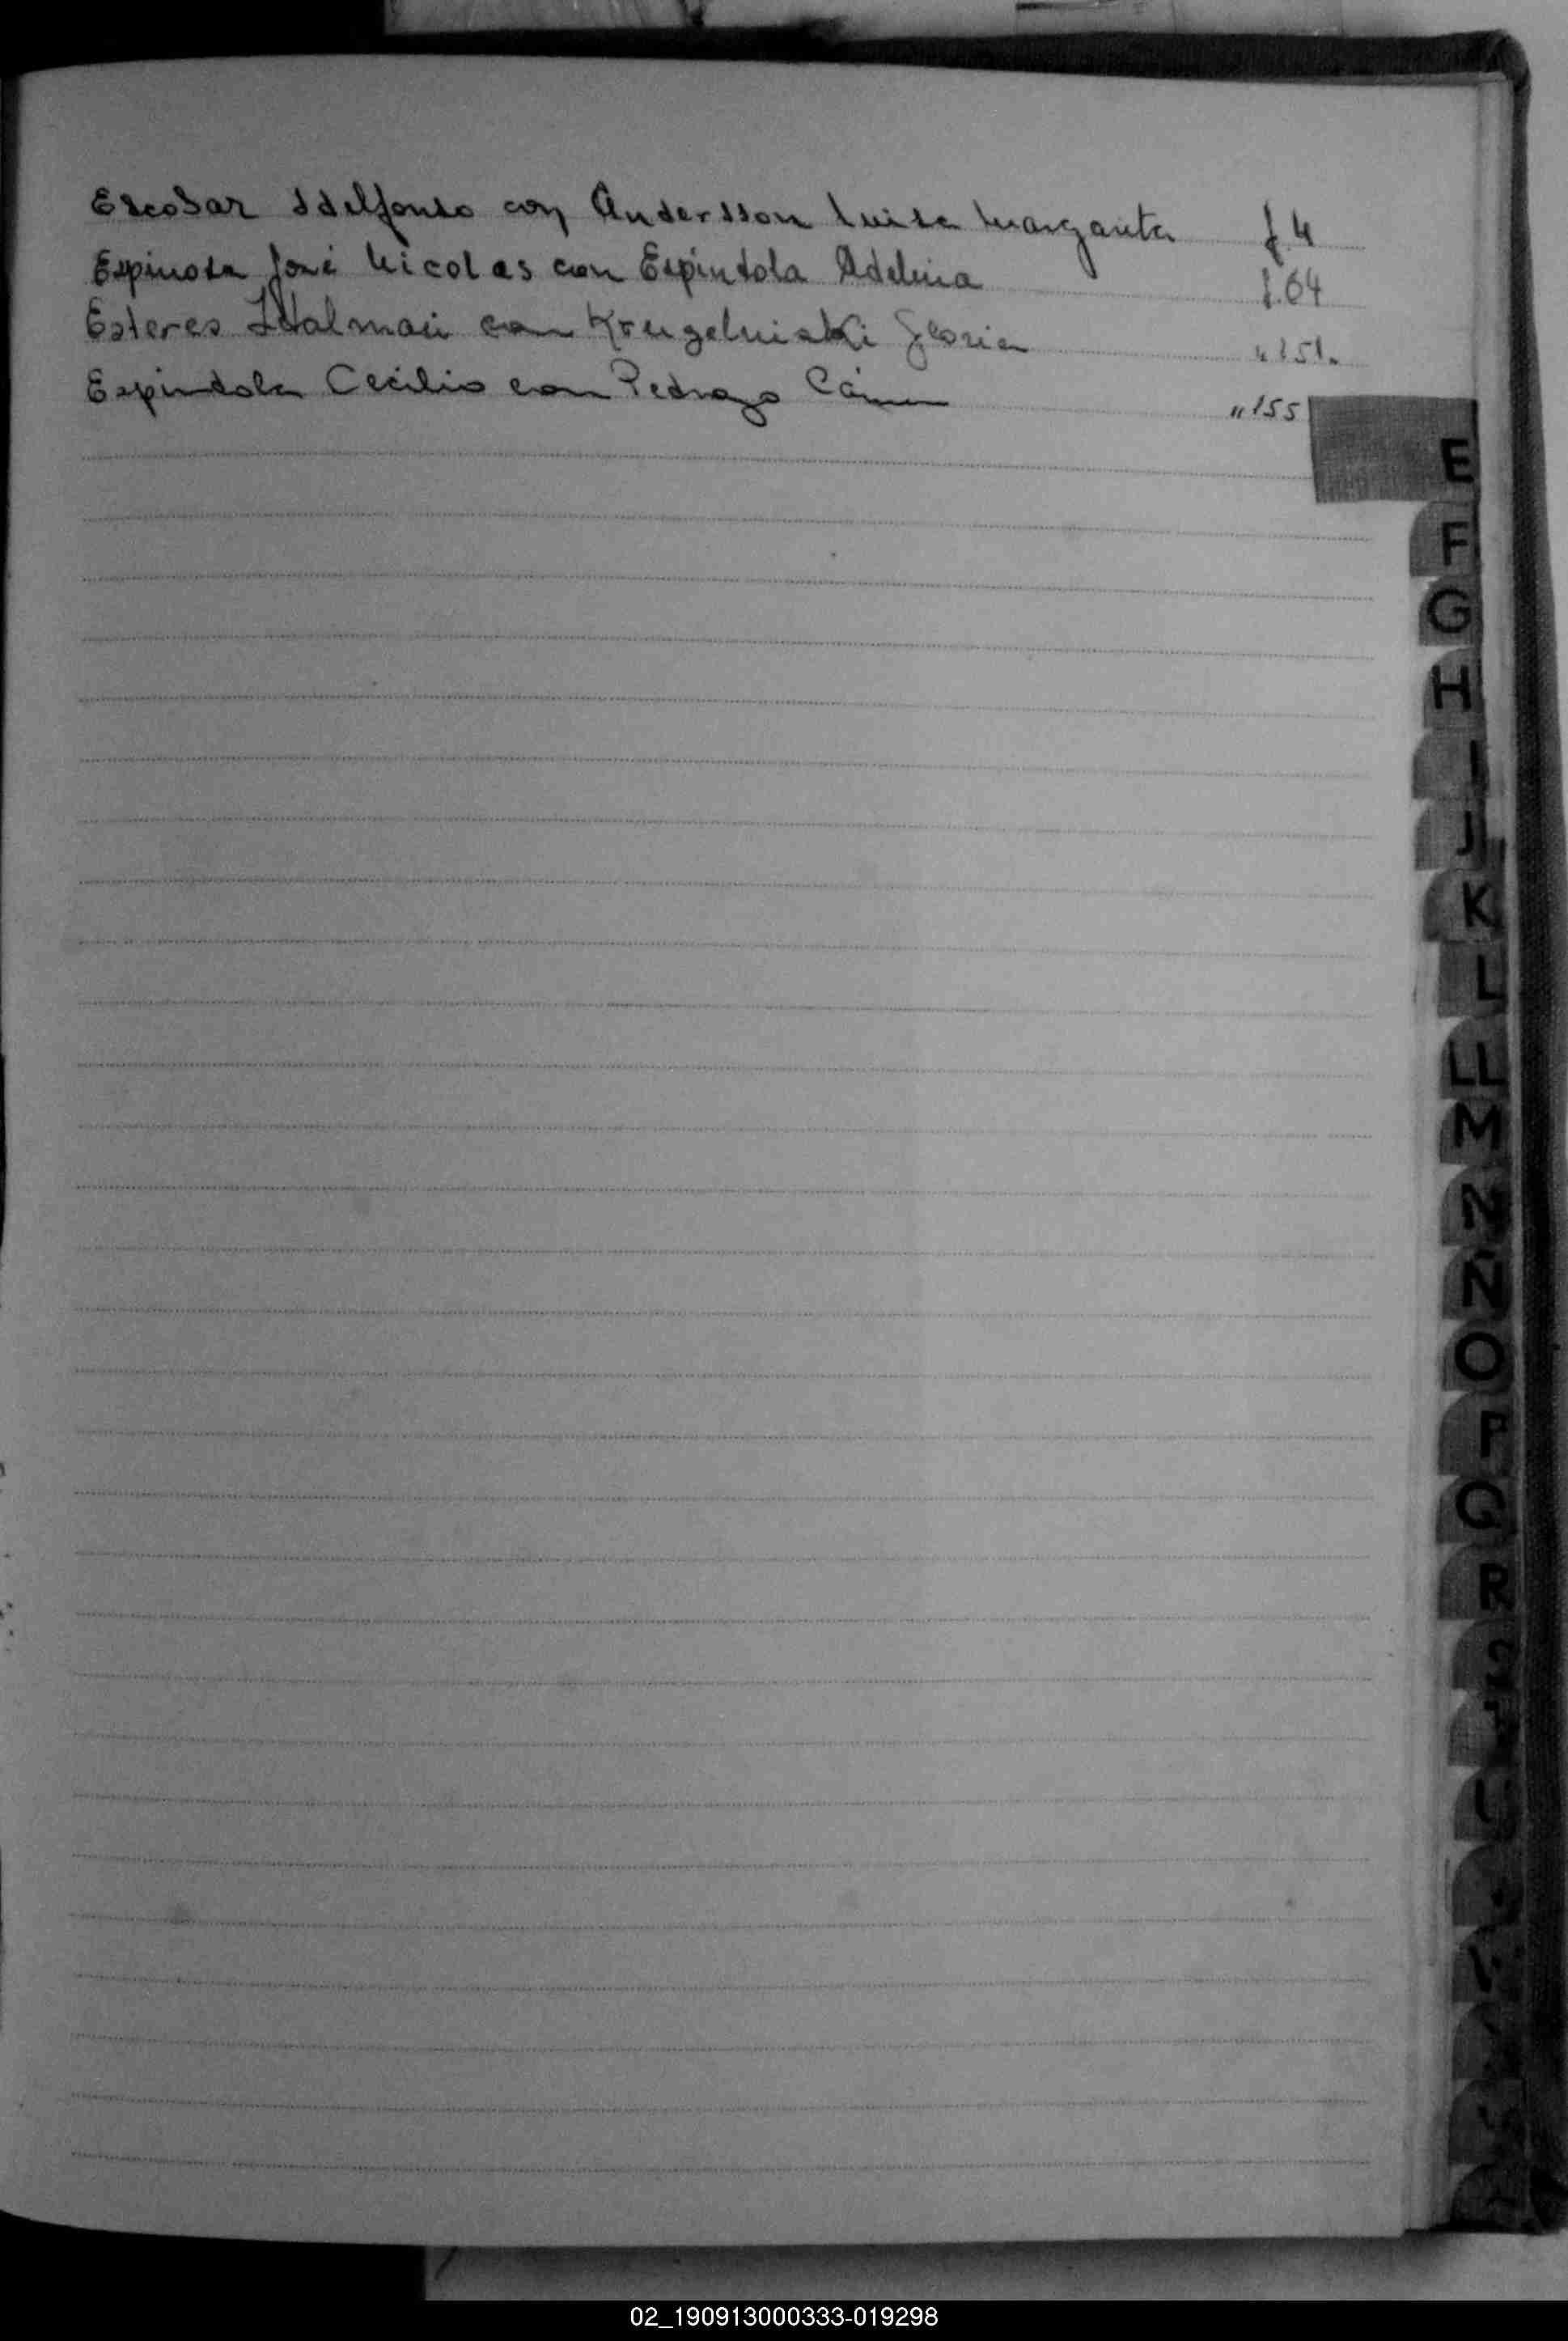 Escobar Idelfonso con Andersson Luisa Margarita f 4
Espinosa José Nicolas con Espindola Adelina f. 64
Esteres con Gloria " 151.
Espindola Cecilio con Pedrozo " 155
E
F
G
H
I
J
K
L
LL
M
N
Ñ
O
P
Q
R
S
U
02_190913000333-019298